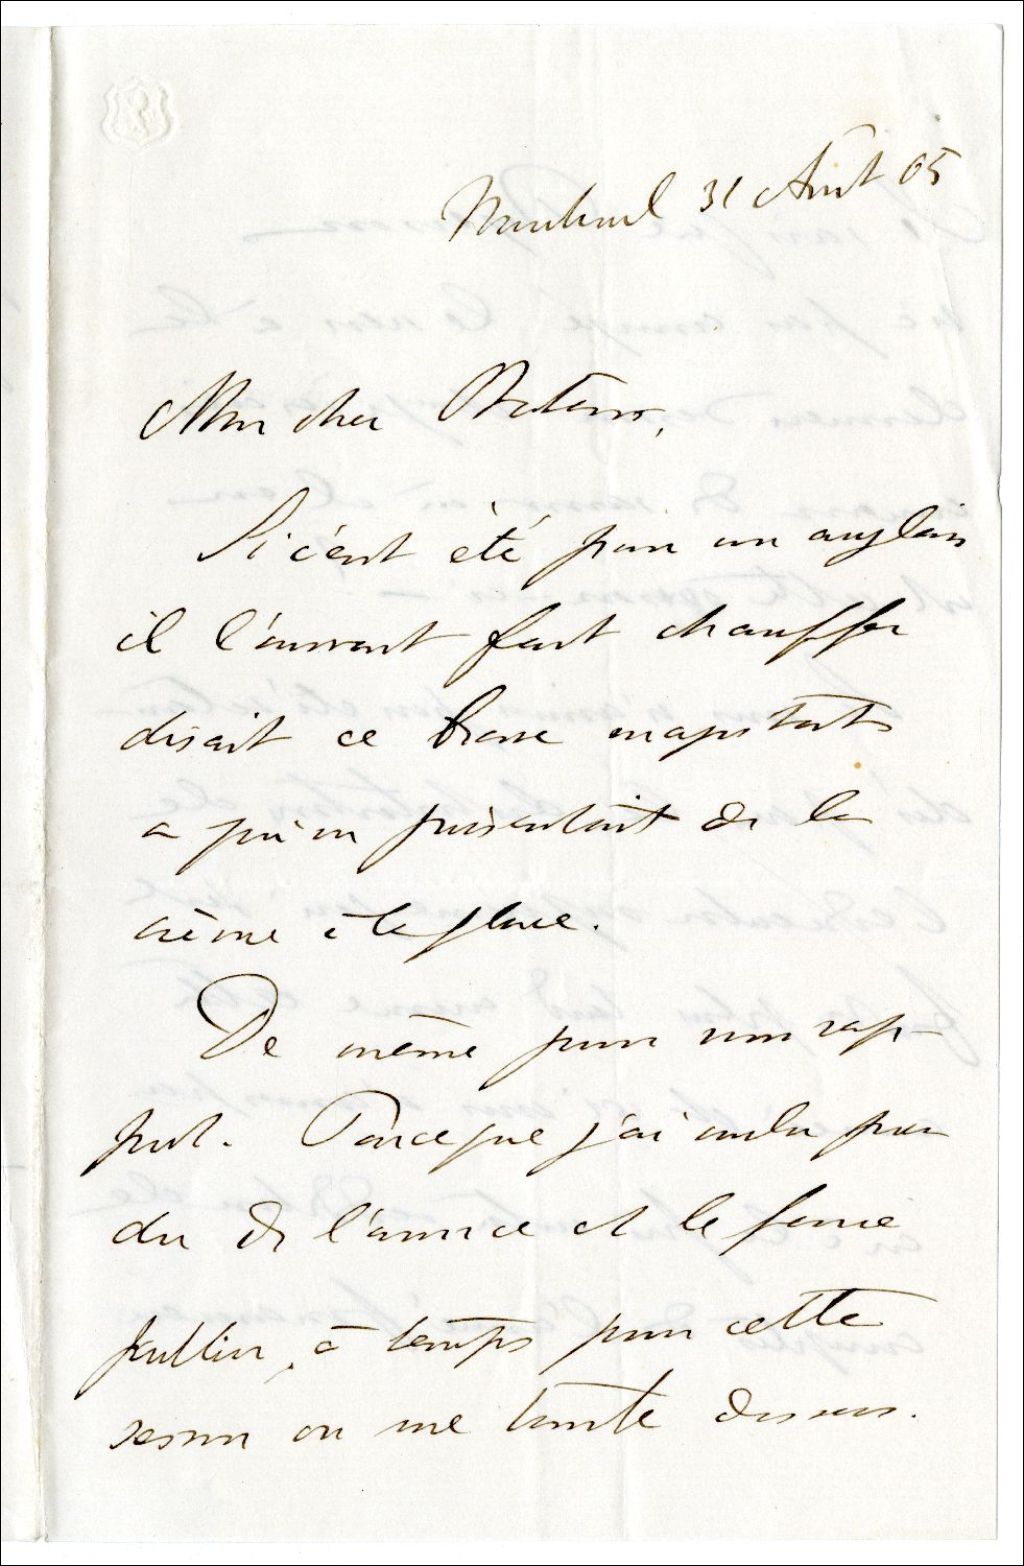 Montreal 31 Août 65
Mon cher
Si c'eut été pour un anglais
il l'auront fait chauffer
disait ce brave magistrat
a qui on présentait de la
crème à la glace.
De même pour mon rap-
port. Parceque j'ai voulu pren
dre de l'avance et le faire
publier, à temps pour cette
session on me tombe dessus.